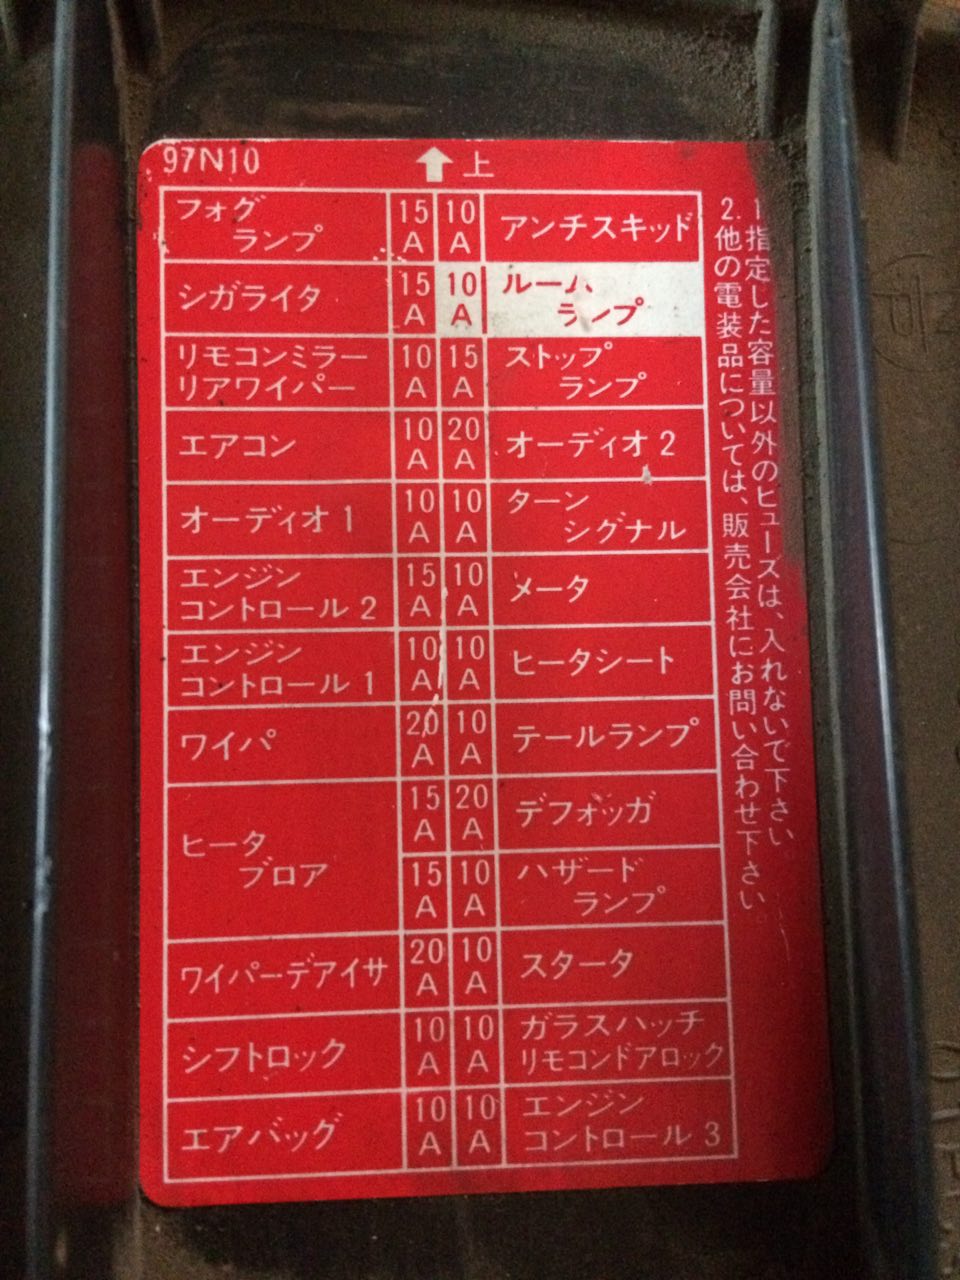 97N10 上
フォグ
ランプ 15A 10A アンチスキッド
シガライタ 15A 10A ルーム
ランプ
リモコンミラー
リアワイパー 10A 15A ストップ
ランプ
エアコン 10A 20A オーディオ2
オーディオ1 10A 10A ターン
シグナル
エンジン
コントロール2 15A 10A メータ
エンジン
コントロール1 10A 10A ヒータシート
ワイパ 20A 10A テールランプ
ヒータ
ブロア 15A 20A デフォッガ
15A 10A ハザード
ランプ
ワイパーデアイサ 20A 10A スタータ
シフトロック 10A 10A ガラスハッチ
リモコンドアロック
エアバッグ 10A 10A エンジン
コントロール3
1.指定した容量以外のヒューズは、入れないで下さい
2.他の電装品については、販売会社にお問い合わせ下さい